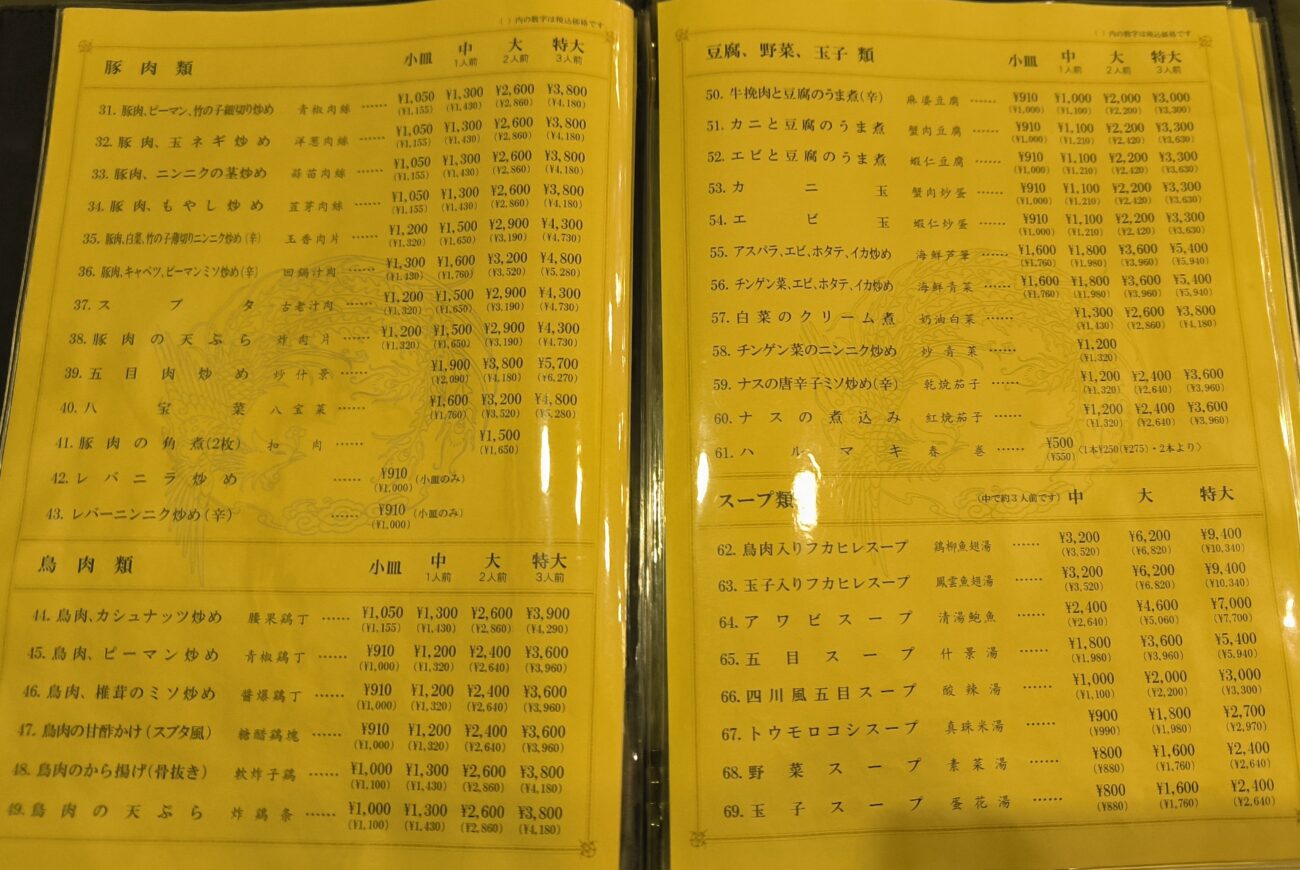 ( )内の数字は税込価格です
豚肉類 小皿 中 大 特大
1人前 2人前 3人前
31. 豚肉、ピーマン、竹の子細切り炒め 青椒肉絲 …… ¥1,050 ¥1,300 ¥2,600 ¥3,800
(¥1,155) (¥1,430) (¥2,860) (¥4,180)
32. 豚肉、玉ネギ炒め 洋葱肉絲 …… ¥1,050 ¥1,300 ¥2,600 ¥3,800
(¥1,155) (¥1,430) (¥2,860) (¥4,180)
33. 豚肉、ニンニクの茎炒め 蒜苗肉絲 …… ¥1,050 ¥1,300 ¥2,600 ¥3,800
(¥1,155) (¥1,430) (¥2,860) (¥4,180)
34. 豚肉、もやし炒め 荳芽肉絲 …… ¥1,050 ¥1,300 ¥2,600 ¥3,800
(¥1,155) (¥1,430) (¥2,860) (¥4,180)
35. 豚肉、白菜、竹の子薄切りニンニク炒め(辛) 玉香肉片 …… ¥1,200 ¥1,500 ¥2,900 ¥4,300
(¥1,320) (¥1,650) (¥3,190) (¥4,730)
36. 豚肉、キャベツ、ピーマンミソ炒め(辛) 回鍋汁肉 …… ¥1,300 ¥1,600 ¥3,200 ¥4,800
(¥1,430) (¥1,760) (¥3,520) (¥5,280)
37. スブタ 古老汁肉 …… ¥1,200 ¥1,500 ¥2,900 ¥4,300
(¥1,320) (¥1,650) (¥3,190) (¥4,730)
38. 豚肉の天ぷら 炸肉片 …… ¥1,200 ¥1,500 ¥2,900 ¥4,300
(¥1,320) (¥1,650) (¥3,190) (¥4,730)
39. 五目肉炒め 炒什景 …… ¥1,900 ¥3,800 ¥5,700
(¥2,090) (¥4,180) (¥6,270)
40. 八宝菜 八宝菜 …… ¥1,600 ¥3,200 ¥4,800
(¥1,760) (¥3,520) (¥5,280)
41. 豚肉の角煮(2枚) 扣肉 …… ¥1,500
(¥1,650)
42. レバニラ炒め …… ¥910 (小皿のみ)
(¥1,000)
43. レバーニンニク炒め(辛) …… ¥910 (小皿のみ)
(¥1,000)
鳥肉類 小皿 中 大 特大
1人前 2人前 3人前
44. 鳥肉、カシュナッツ炒め 腰果鶏丁 …… ¥1,050 ¥1,300 ¥2,600 ¥3,900
(¥1,155) (¥1,430) (¥2,860) (¥4,290)
45. 鳥肉、ピーマン炒め 青椒鶏丁 …… ¥910 ¥1,200 ¥2,400 ¥3,600
(¥1,000) (¥1,320) (¥2,640) (¥3,960)
46. 鳥肉、椎茸のミソ炒め 醬爆鶏丁 …… ¥910 ¥1,200 ¥2,400 ¥3,600
(¥1,000) (¥1,320) (¥2,640) (¥3,960)
47. 鳥肉の甘酢かけ(スブタ風) 糖醋鶏塊 …… ¥910 ¥1,200 ¥2,400 ¥3,600
(¥1,000) (¥1,320) (¥2,640) (¥3,960)
48. 鳥肉のから揚げ(骨抜き) 軟炸子鶏 …… ¥1,000 ¥1,300 ¥2,600 ¥3,800
(¥1,100) (¥1,430) (¥2,860) (¥4,180)
49. 鳥肉の天ぷら 炸鶏条 …… ¥1,000 ¥1,300 ¥2,600 ¥3,800
(¥1,100) (¥1,430) (¥2,860) (¥4,180)
( )内の数字は税込価格です
豆腐、野菜、玉子類 小皿 中 大 特大
1人前 2人前 3人前
50. 牛挽肉と豆腐のうま煮(辛) 麻婆豆腐 …… ¥910 ¥1,000 ¥2,000 ¥3,000
(¥1,000) (¥1,100) (¥2,200) (¥3,300)
51. カニと豆腐のうま煮 蟹肉豆腐 …… ¥910 ¥1,100 ¥2,200 ¥3,300
(¥1,000) (¥1,210) (¥2,420) (¥3,630)
52. エビと豆腐のうま煮 蝦仁豆腐 …… ¥910 ¥1,100 ¥2,200 ¥3,300
(¥1,000) (¥1,210) (¥2,420) (¥3,630)
53. カニ玉 蟹肉炒蛋 …… ¥910 ¥1,100 ¥2,200 ¥3,300
(¥1,000) (¥1,210) (¥2,420) (¥3,630)
54. エビ玉 蝦仁炒蛋 …… ¥910 ¥1,100 ¥2,200 ¥3,300
(¥1,000) (¥1,210) (¥2,420) (¥3,630)
55. アスパラ、エビ、ホタテ、イカ炒め 海鮮芦筆 …… ¥1,600 ¥1,800 ¥3,600 ¥5,400
(¥1,760) (¥1,980) (¥3,960) (¥5,940)
56. チンゲン菜、エビ、ホタテ、イカ炒め 海鮮青菜 …… ¥1,600 ¥1,800 ¥3,600 ¥5,400
(¥1,760) (¥1,980) (¥3,960) (¥5,940)
57. 白菜のクリーム煮 奶油白菜 …… ¥1,300 ¥2,600 ¥3,800
(¥1,430) (¥2,860) (¥4,180)
58. チンゲン菜のニンニク炒め 炒青菜 …… ¥1,200
(¥1,320)
59. ナスの唐辛子ミソ炒め(辛) 乾焼茄子 …… ¥1,200 ¥2,400 ¥3,600
(¥1,320) (¥2,640) (¥3,960)
60. ナスの煮込み 紅焼茄子 …… ¥1,200 ¥2,400 ¥3,600
(¥1,320) (¥2,640) (¥3,960)
61. ハルマキ 春巻 …… ¥500 〈1本¥250(¥275)・2本より〉
(¥550)
スープ類 (中で約3人前です) 中 大 特大
62. 鳥肉入りフカヒレスープ 鶏柳魚翅湯 …… ¥3,200 ¥6,200 ¥9,400
(¥3,520) (¥6,820) (¥10,340)
63. 玉子入りフカヒレスープ 鳳雲魚翅湯 …… ¥3,200 ¥6,200 ¥9,400
(¥3,520) (¥6,820) (¥10,340)
64. アワビスープ 清湯鮑魚 …… ¥2,400 ¥4,600 ¥7,000
(¥2,640) (¥5,060) (¥7,700)
65. 五目スープ 什景湯 …… ¥1,800 ¥3,600 ¥5,400
(¥1,980) (¥3,960) (¥5,940)
66. 四川風五目スープ 酸辣湯 …… ¥1,000 ¥2,000 ¥3,000
(¥1,100) (¥2,200) (¥3,300)
67. トウモロコシスープ 真珠米湯 …… ¥900 ¥1,800 ¥2,700
(¥990) (¥1,980) (¥2,970)
68. 野菜スープ 素菜湯 …… ¥800 ¥1,600 ¥2,400
(¥880) (¥1,760) (¥2,640)
69. 玉子スープ 蛋花湯 …… ¥800 ¥1,600 ¥2,400
(¥880) (¥1,760) (¥2,640)